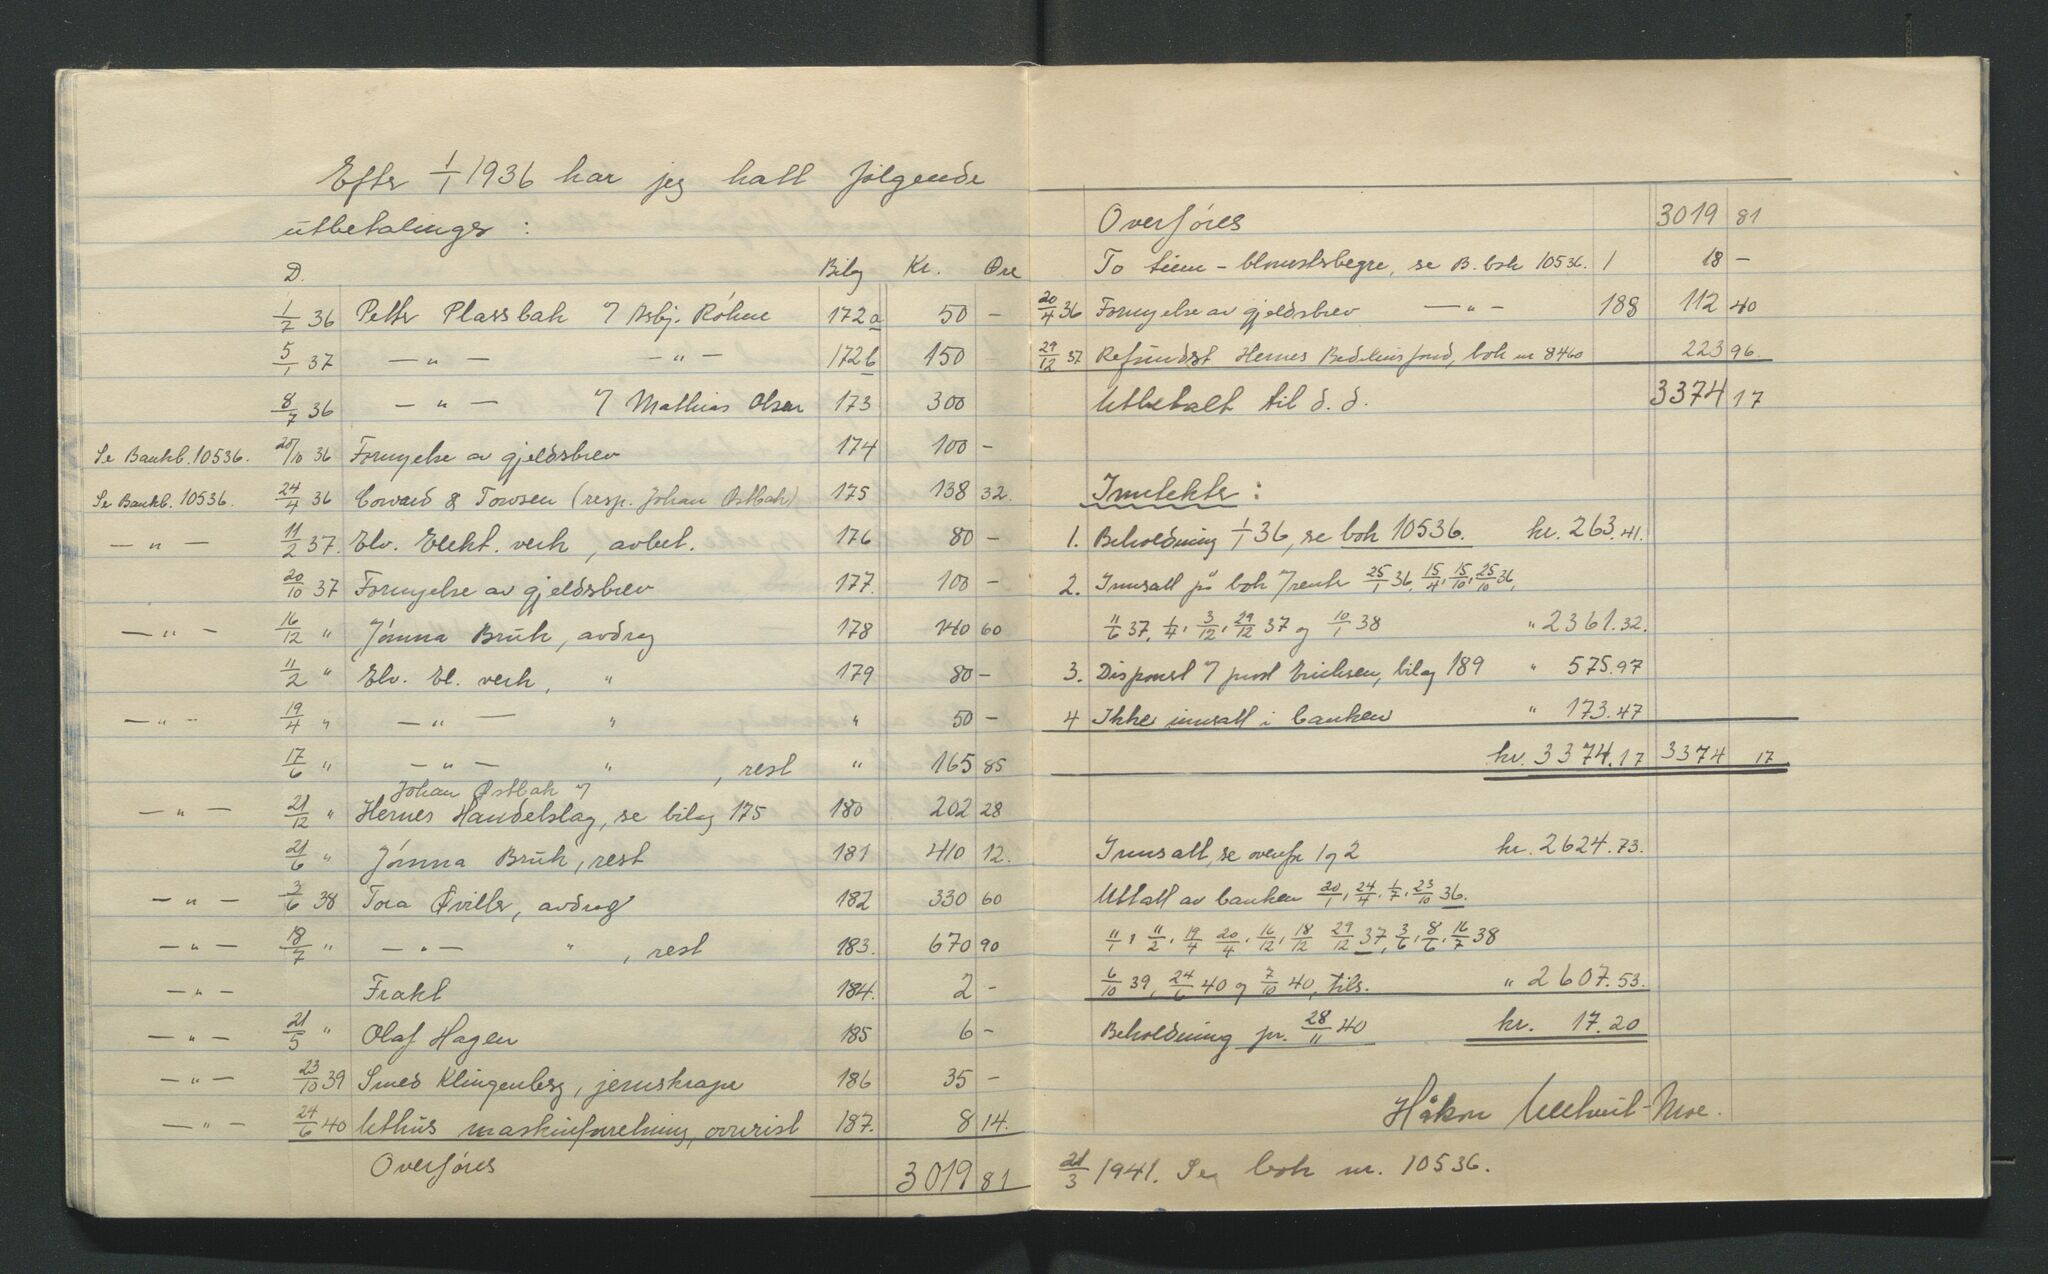 Efter 1/1 1936 har jeg hatt følgende
utbetalinger :
D. Bilag Kr. Øre
1/7 36 Petter Plassbak v/ Asbj. Røhne 172a 50 -
5/1 37 — " — — " — 172b 150 -
8/7 36 — " — v/ Mathias Olsen 173 300
Se Bankb. 10536. 20/10 36 Fornyelse av gjeldsbrev 174 100 -
Se Bankb. 10536. 24/4 36 Coward & Towsen (resp. Johan Østbak) 175 138 32.
— " — 11/2 37. Elv. Elekt. verk, avbet. 176 80 -
20/10 37 Fornyelse av gjeldsbrev 177. 100 -
— " — 16/12 " Jömna Bruk, avdrag 178 140 60
11/2 " Elv. El. verk, " 179 80 -
— " — 19/4 " — " — " " 50 -
17/6 " — " — " , rest " 165 85
Johan Østbak v/
— " — 21/12 " Hernes Handelslag, se bilag 175 180 202 28
21/6 " Jömna Bruk, rest 181 410 12.
— " — 3/6 38 Tora Øviller, avdrag 182 330 60
— " — 18/7 " — " — " , rest 183. 670 90
— " — Frakt 184. 2 -
— " — 21/5 " Olaf Hagen 185 6 -
— " — 23/10 39 Smed Klingenberg, jernskrape 186 35 -
— " — 24/6 40 Uthus maskinforretning, ovnrist 187. 8 14.
Overføres 3019 81
Overføres 3019 81
To sinn-blomsterbegre, se B. bok 10536. 1 18 -
20/4 36 Fornyelse av gjeldsbrev — " — 188 112 40
29/12 37 Refundert Hernes Bedehusfond, bok nr 8460 223 96.
Utbetalt til d. d. 3374 17
Inntekter :
1. Beholdning 1/1 36, se bok 10536. kr. 263.41.
2. Innsatt på bok v/ rente 25/1 36, 15/4, 15/10, 25/10 36,
11/6 37, 1/4, 3/12, 29/12 37 og 10/1 38 " 2361.32.
3. Disponert v/ prost Erichsen, bilag 189 " 575.97
4 Ikke innsatt i banken " 173.47
kr. 3374.17 3374 17
Innsatt, se ovenfor 1 og 2 kr. 2624.73.
Uttatt av banken 20/1, 24/4, 1/7, 23/10 36.
11/1, 11/2, 19/4 20/4, 16/12, 18/12 29/12 37, 3/6, 8/6, 16/7 38
6/10 39, 24/6 40 og 7/10 40, tils. " 2607.53.
Beholdning pr. 28/11 40 kr. 17.20
Håkon -Moe.
21/3 1941. Se bok nr. 10536.